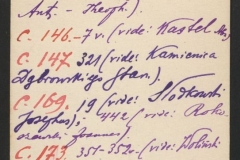 Ant. - Theoph.).
C. 146. - 7 v. (vide: Kastel
C. 147. 321 (vide: Kamienica
Dąbrowskiego Stan.).
C. 169. 19 (vide: Słodkowski
Josephus); 442 (vide: Roko-
Joannes)
C. 173. 351-352. (vide: Woliński